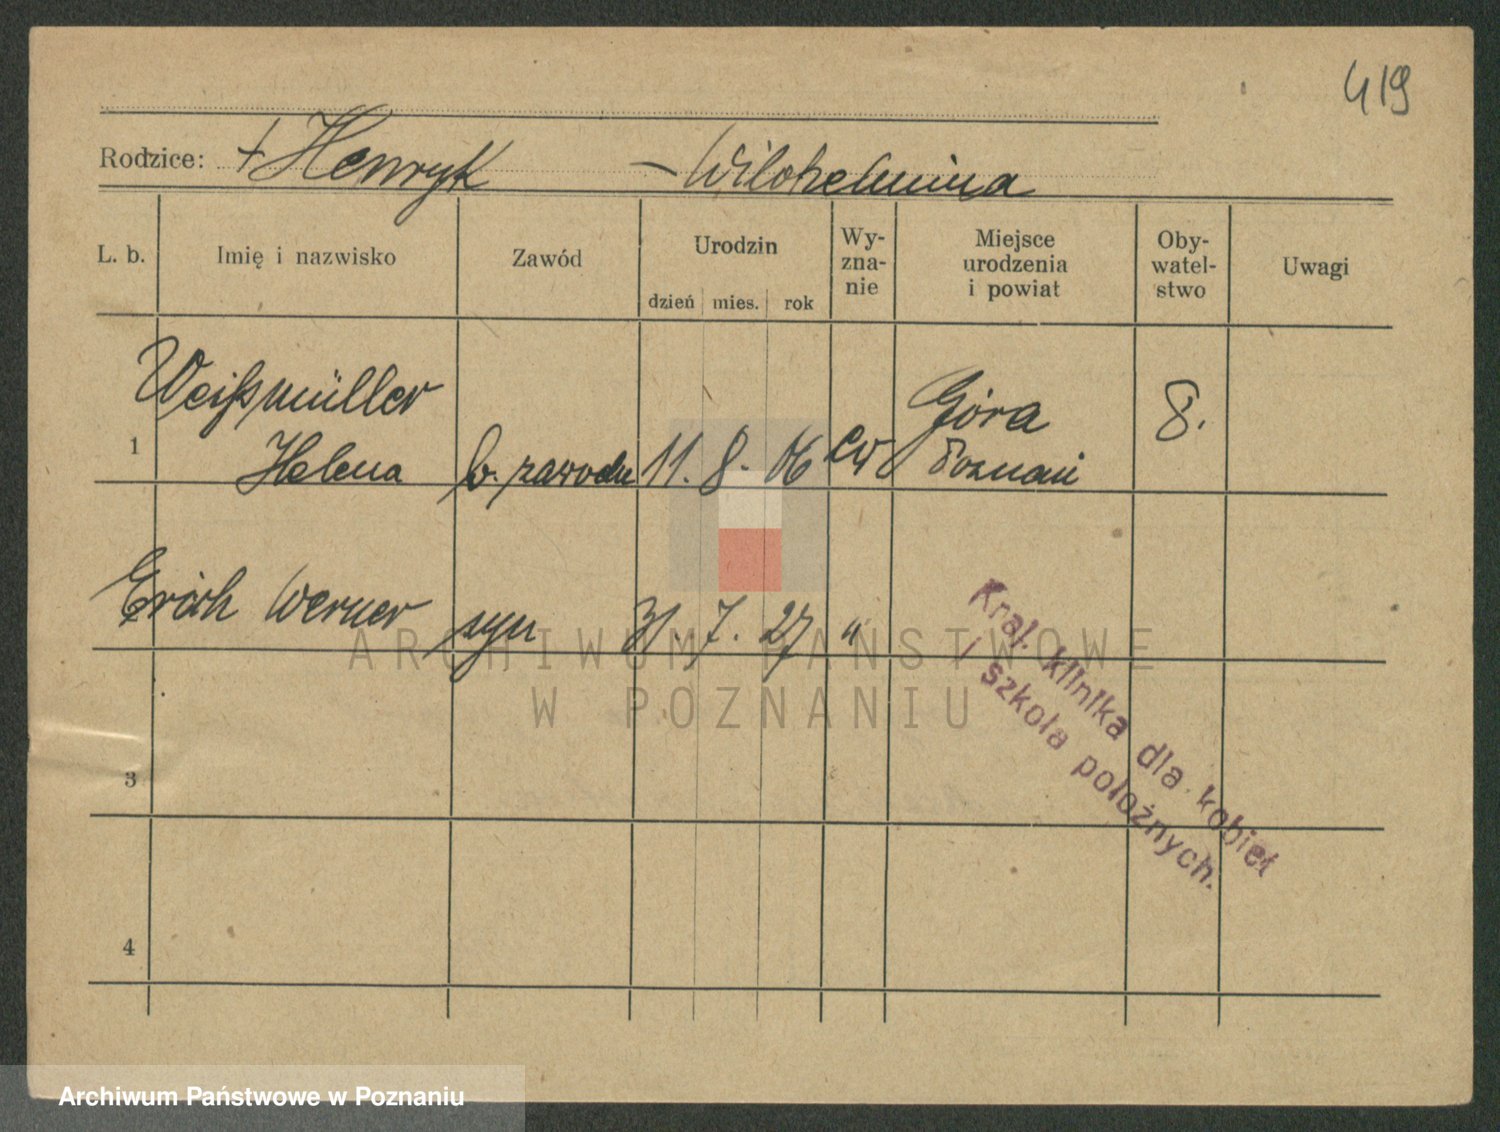 419
Rodzice: + Henryk – Wilchelmina
L. b. Imię i nazwisko Zawód Urodzin dzień mies. rok Wy-zna-nie Miejsce urodzenia i powiat Oby-watel-stwo Uwagi
Weißmüller Góra 8.
1 Helena b. zawodu 11. 8. 06 ew Poznań
Erich Werner syn 31. 7. 27 "
3
4
Kraj. klinika dla kobiet
i szkoła położnych.
ARCHIWUM PAŃSTWOWE
W POZNANIU
Archiwum Państwowe w Poznaniu